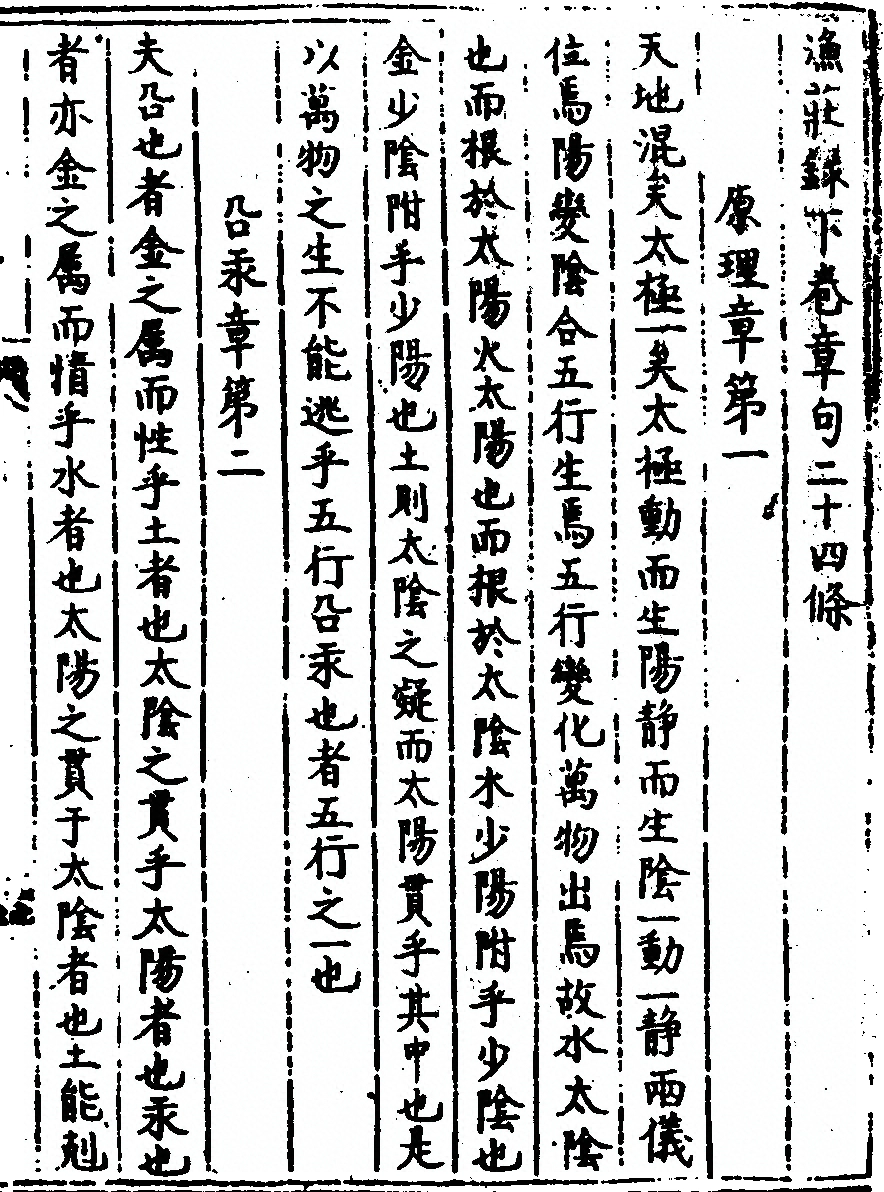 漁莊錄下卷章句二十四條
原理章第一
天地混矣太極一矣太極動而生陽静而生陰一動一静兩儀
位焉陽變陰合五行生焉五行變化萬物出焉故水太陰
也而根於太陽火太陽也而根於太陰木少陽附乎少陰也
金少陰附乎少陽也土則太陰之凝而太陽貫乎其中也是
以萬物之生不能逃乎五行㕣汞也者五行之一也
㕣汞章第二
夫㕣也者金之属而性乎土者也太陰之貫乎太陽者也汞也
者亦金之属而情乎水者也太陽之貫于太陰者也土能剋